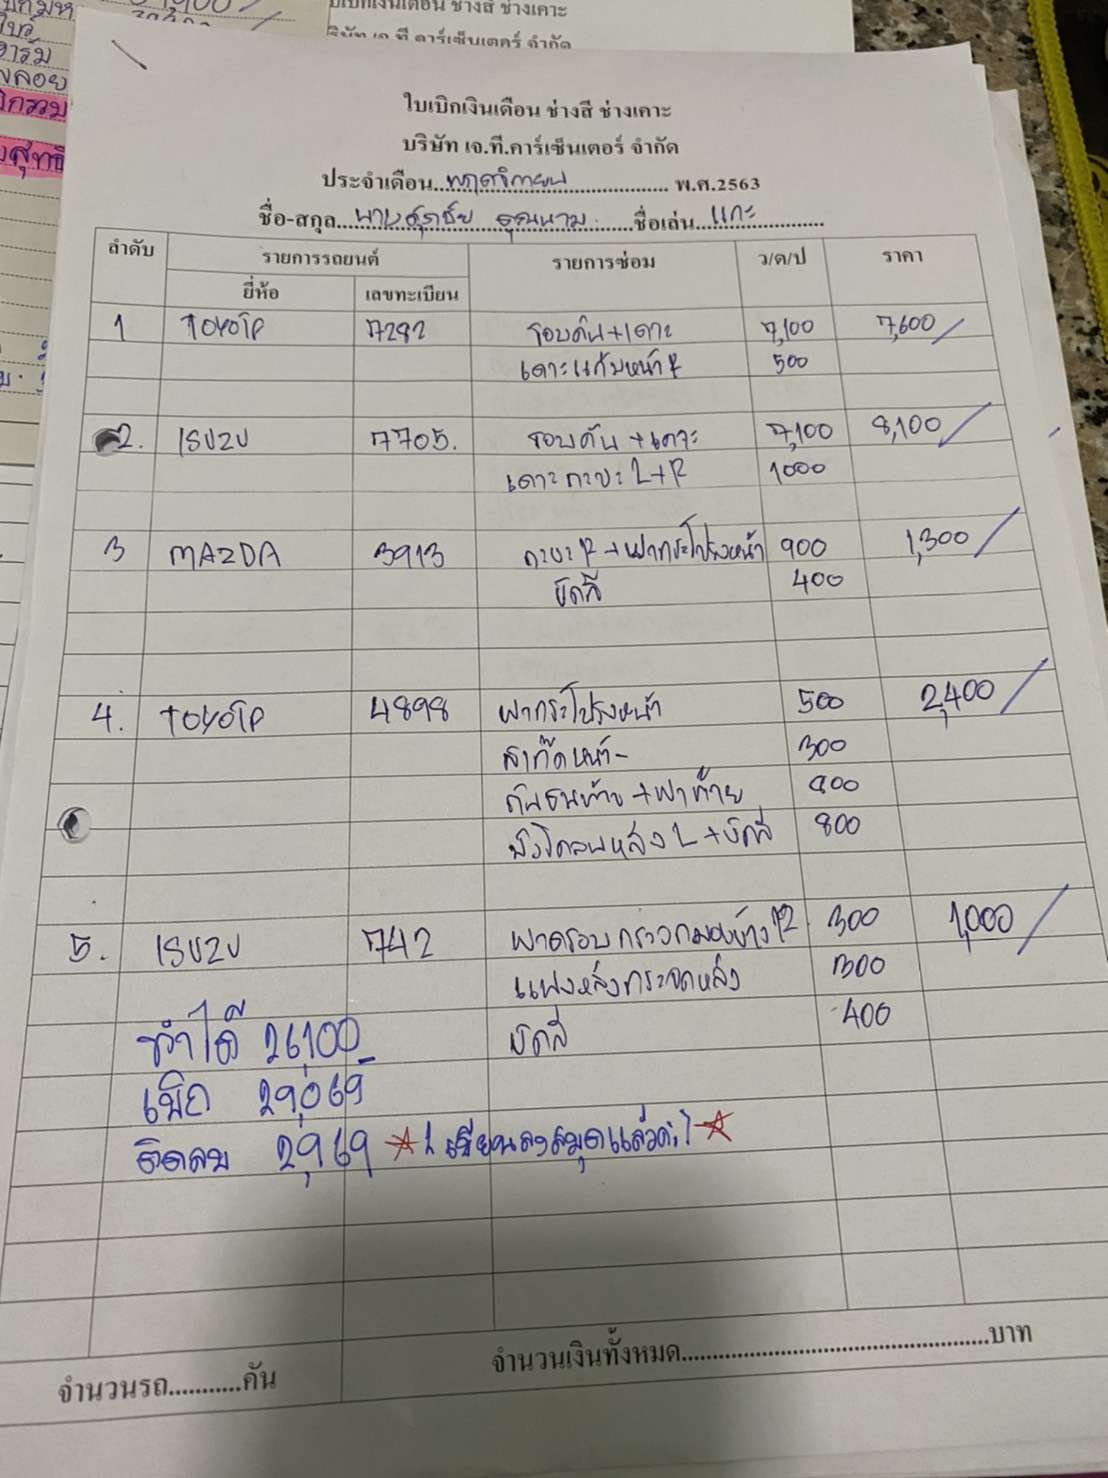 ใบเบิกเงินเดือน ช่างสี ช่างเคาะ
บริษัท เจ.ที.คาร์เซ็นเตอร์ จำกัด
ใบเบิกเงินเดือน ช่างสี ช่างเคาะ
บริษัท เจ.ที.คาร์เซ็นเตอร์ จำกัด
ประจำเดือน..พฤศจิกายน.................... พ.ศ.2563
ชื่อ-สกุล...นายสุรชัย คุณนาม......ชื่อเล่น...แกะ............
ลำดับ รายการรถยนต์ รายการซ่อม ว/ด/ป ราคา
ยี่ห้อ เลขทะเบียน
1 TOYOTA 7292 รอบคัน+เคาะ 7,100 7,600/
เคาะแก้มหน้า R 500
2. ISUZU 7705. รอบคัน+เคาะ 7,100 8,100/
เคาะกะบะ L+R 1000
3 MAZDA 3913 กะบะ R+ฝากระโปรงหน้า 900 1,300/
ขัดสี 400
4. TOYOTA 4898 ฝากระโปรงหน้า 500 2,400/
สเก๊ตหน้า- 300
กันชนท้าย+ฝาท้าย 800
บังโคลนหลัง L+ขัดสี 800
5. ISUZU 742 ฝาครอบกระจกมองข้าง R 300 1,000/
แผงหลังกระจกหลัง 300
ทำได้ 26,100 ขัดสี 400
เบิก 29,069
ติดลบ 2,969 ☆(เขียนลงสมุดแล้วค่ะ)☆
จำนวนรถ...........คัน จำนวนเงินทั้งหมด..................................................บาท